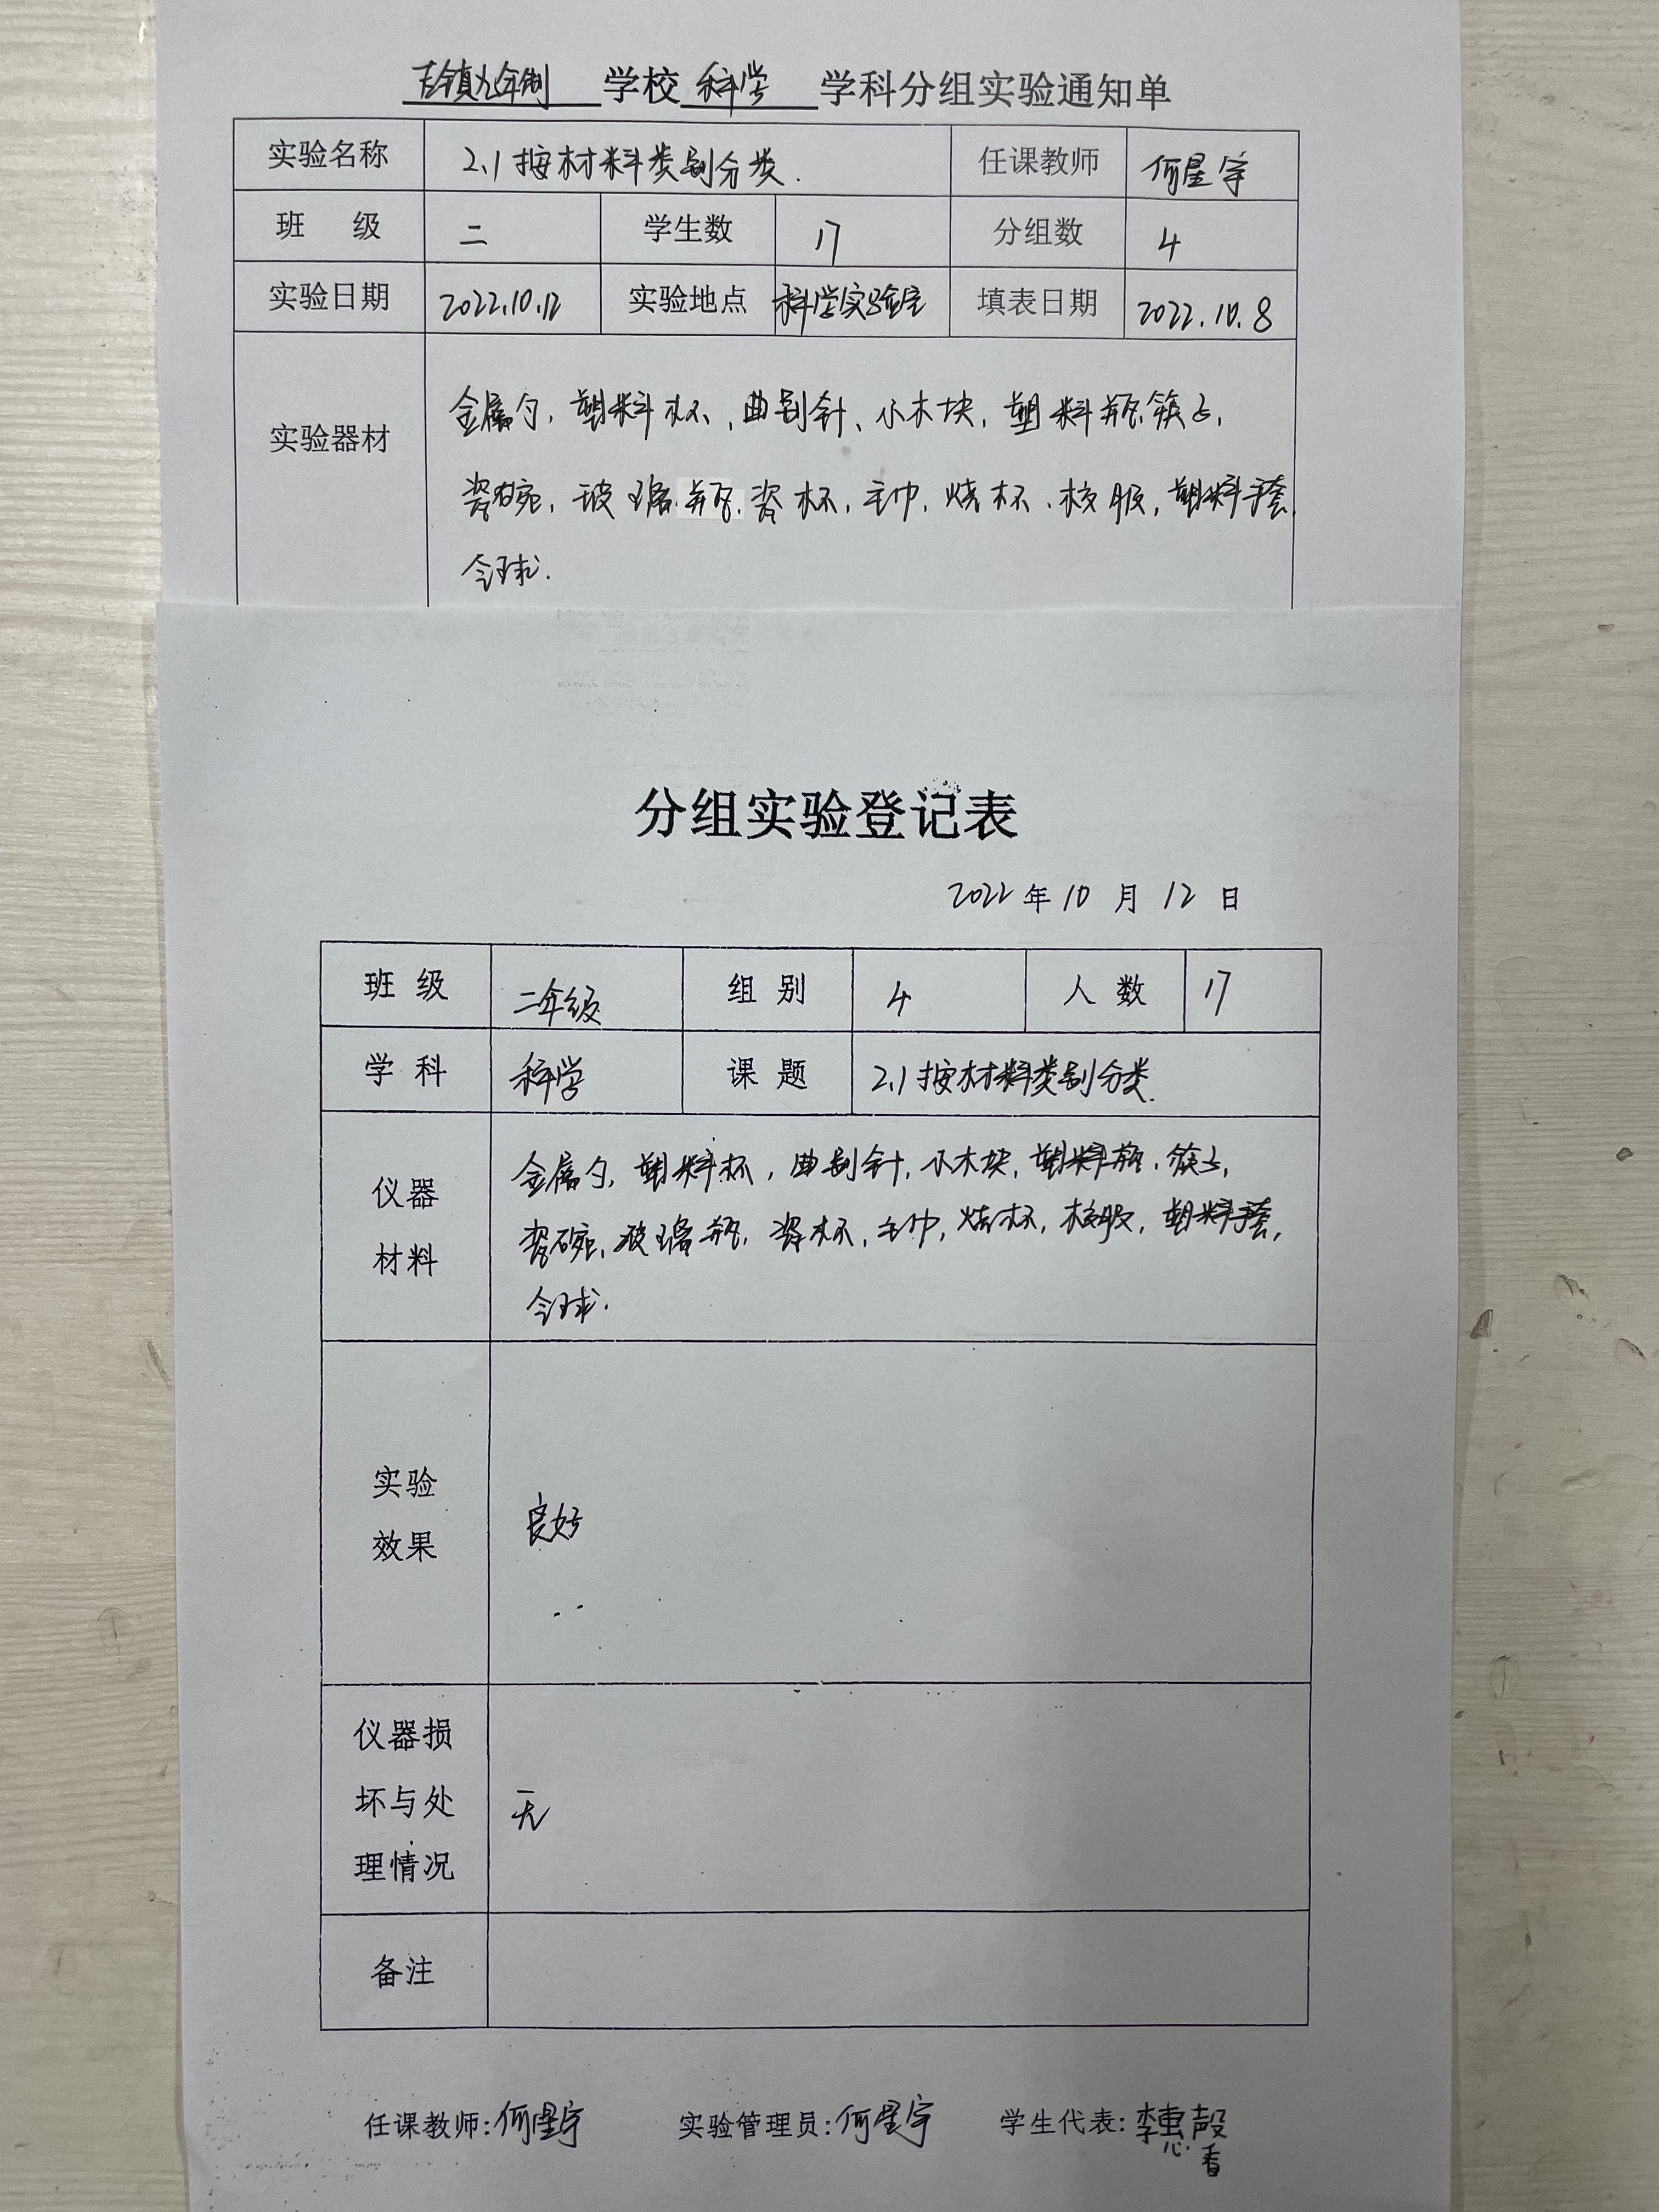 吉镇九年制 学校 科学 学科分组实验通知单
实验名称 2.1按材料类别分类. 任课教师 何星宇
班 级 二 学生数 17 分组数 4
实验日期 2022.10.12 实验地点 科学实验室 填表日期 2022.10.8
实验器材
金属勺, 塑料杯, 曲别针、小木块, 塑料瓶.筷子,
瓷碗, 玻璃瓶. 瓷杯, 毛巾, 烧杯、校服, 塑料手套,
铅球.
分组实验登记表
2022 年 10 月 12 日
班 级 二年级 组 别 4 人 数 17
学 科 科学 课 题 2.1按材料类别分类.
仪器
材料
金属勺, 塑料杯, 曲别针, 小木块, 塑料瓶, 筷子,
瓷碗, 玻璃瓶, 瓷杯, 毛巾, 烧杯, 校服, 塑料手套,
实验
效果
良好
仪器损
坏与处
理情况
无
备注
任课教师:何星宇 实验管理员:何星宇 学生代表:李惠馨